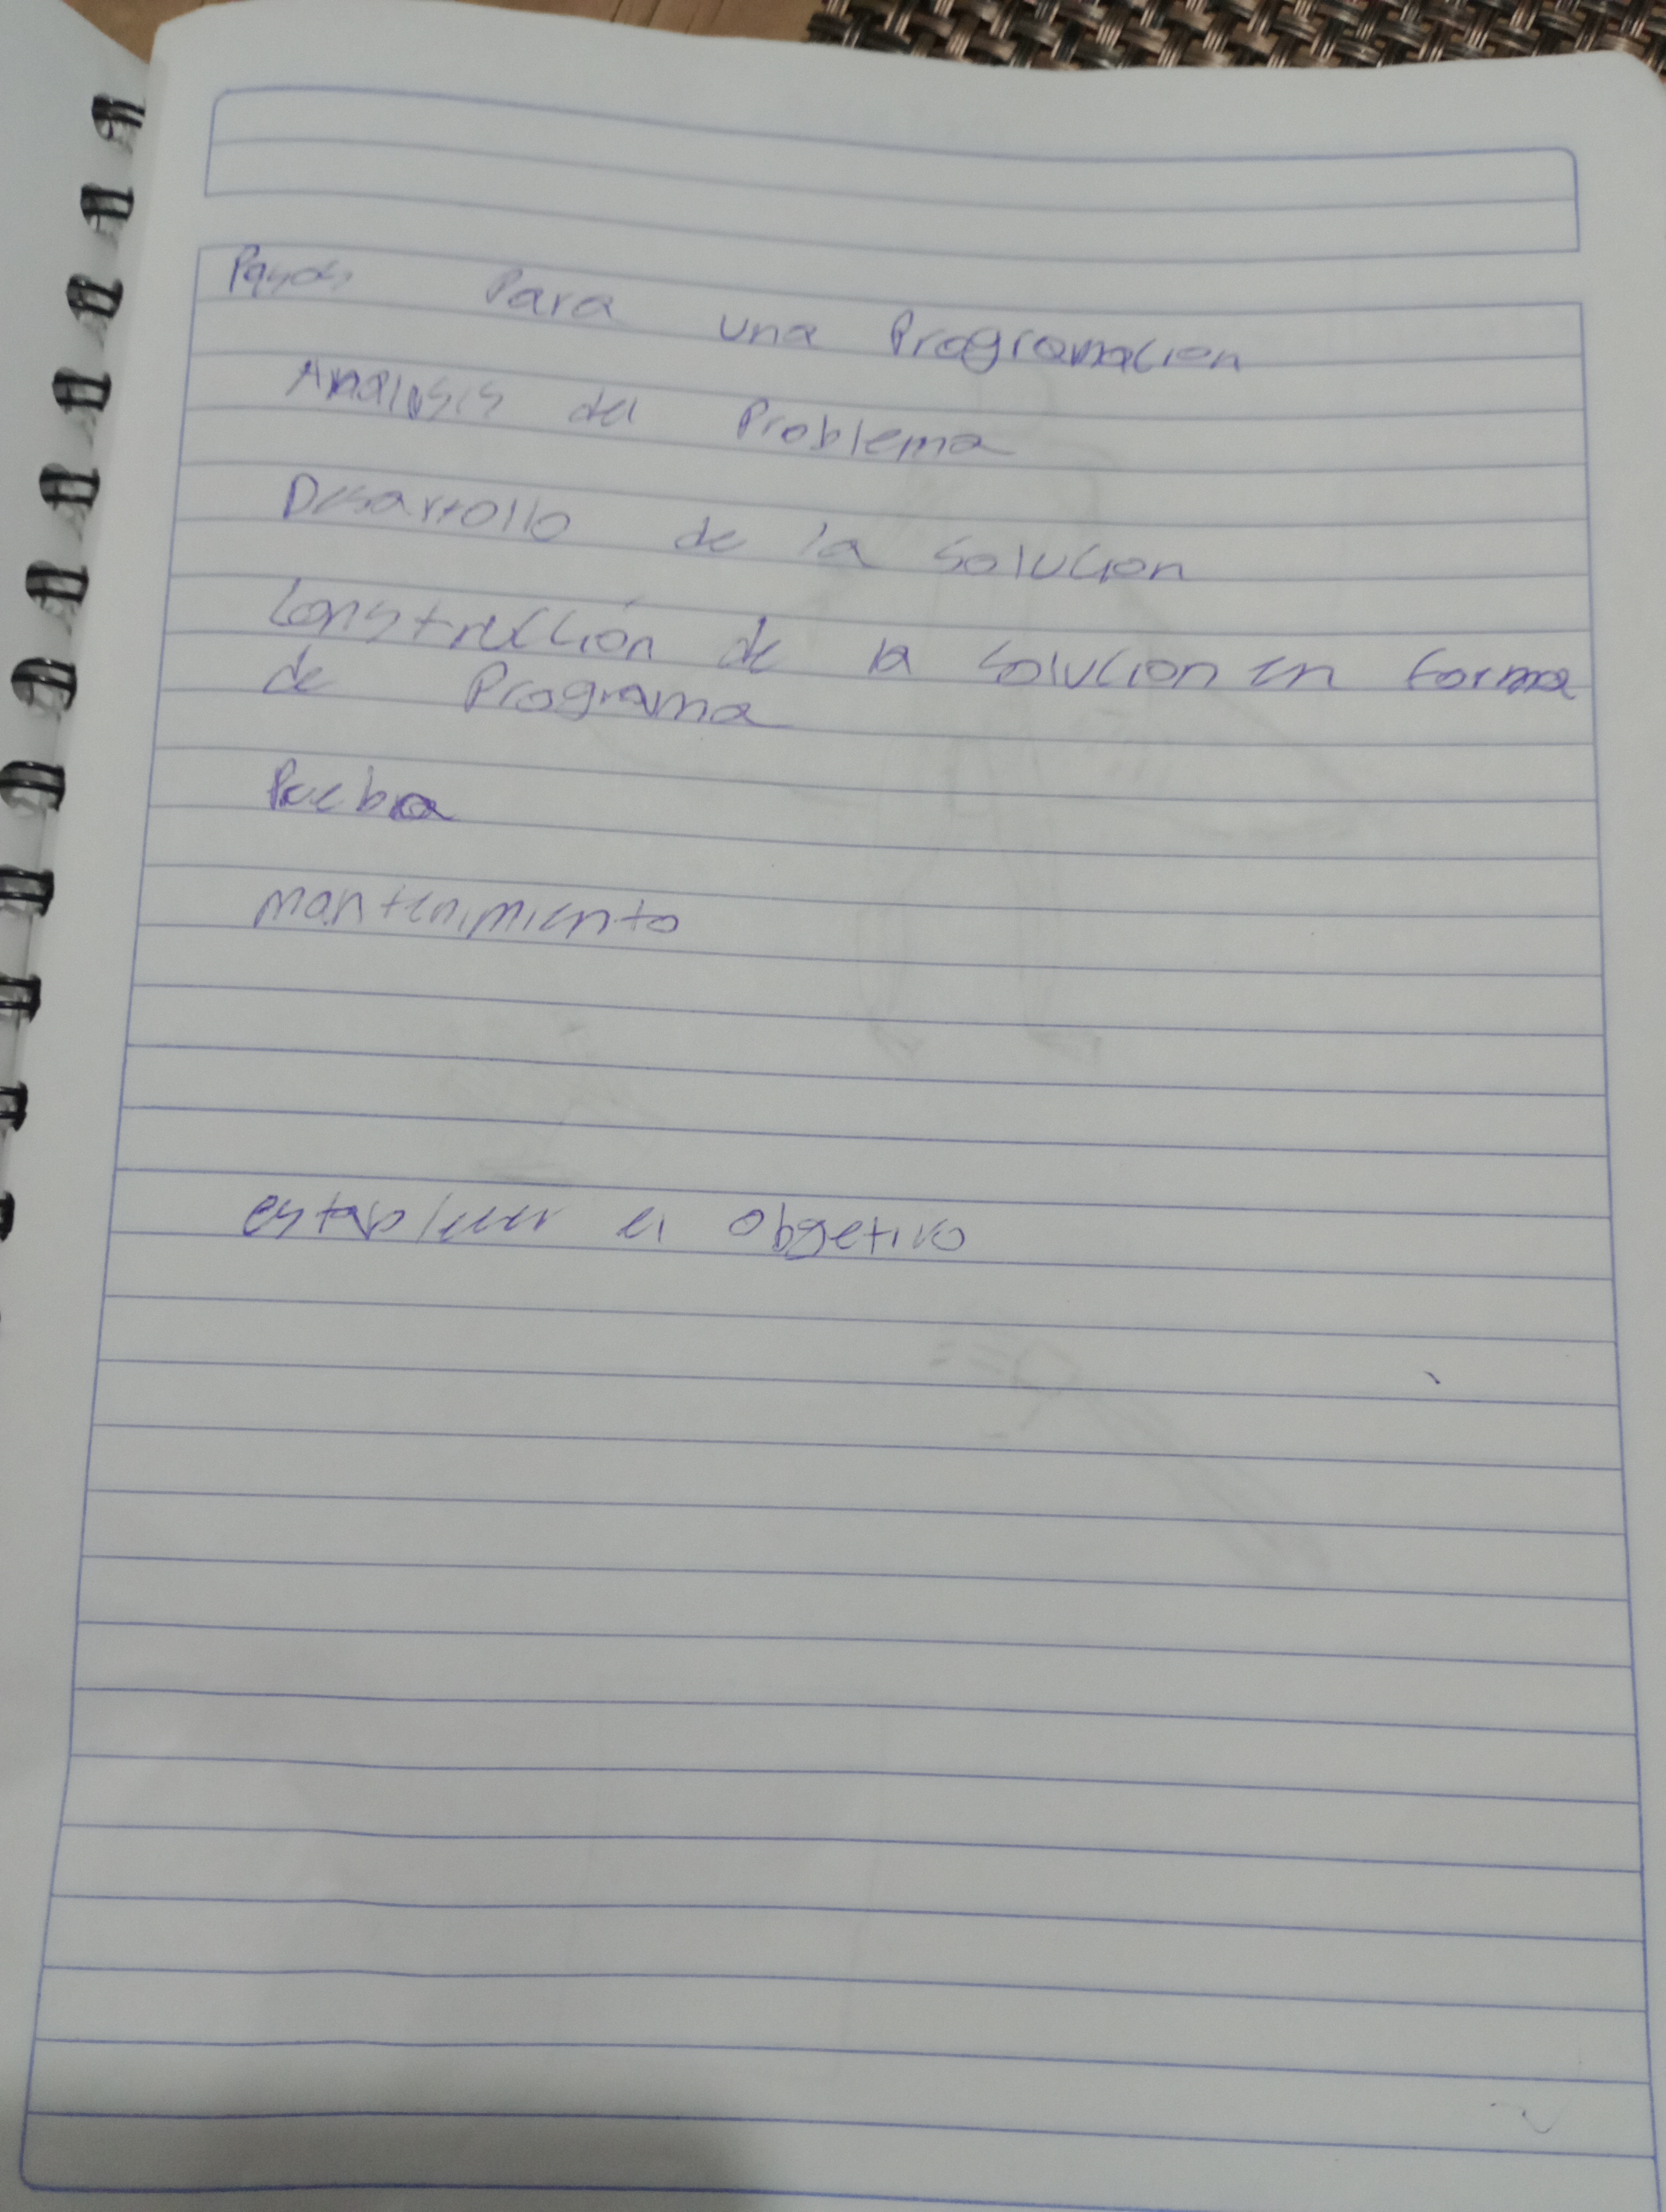 Pasos Para una Programacion
Analisis del Problema
Desarrollo de la Solucion
Construcción de la Solucion en forma
de Programa
Pueba
mantenimiento
establecer el obgetivo